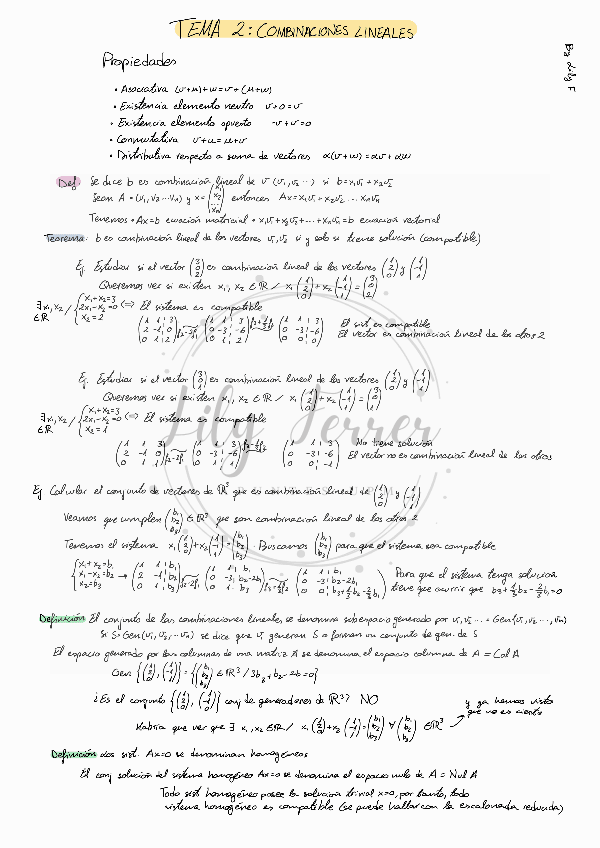 TEMA 2: COMBINACIONES LINEALES
By Lily F
Propiedades
• Asociativa (v+u)+w=v+(u+w)
• Existencia elemento neutro v+0=v
• Existencia elemento opuesto -v+v=0
• Conmutativa v+u=u+v
• Distributiva respecto a suma de vectores α(v+w)=αv+αw
Def Se dice b es combinación lineal de v (v₁,v₂...) si b=x₁v₁+x₂v₂
Sean A=(v₁,v₂...vₙ) y x=(x₁ x₂ ... xₙ) entonces Ax=x₁v₁+x₂v₂...xₙvₙ
Tenemos • Ax=b ecuación matricial • x₁v₁+x₂v₂+...+xₙvₙ=b ecuación vectorial
Teorema: b es combinación lineal de los vectores v₁,v₂ si y solo si tiene solución (compatible)
Ej Estudiar si el vector (3 0 2) es combinación lineal de los vectores (1 2 0) y (1 -1 1)
Queremos ver si existen x₁, x₂ ∈ ℝ / x₁(1 2 0)+x₂(1 -1 1)=(3 0 2)
∃x₁,x₂ ∈ℝ / {x₁+x₂=3 2x₁-x₂=0 x₂=2 ⟺ El sistema es compatible
(1 1 | 3 2 -1 | 0 0 1 | 2) (1 1 | 3 0 -3 | -6 0 1 | 2) (1 1 | 3 0 -3 | -6 0 0 | 0) El sist es compatible
El vector es combinación lineal de los otros 2
Ej Estudiar si el vector (3 0 1) es combinación lineal de los vectores (1 2 0) y (1 -1 1)
Queremos ver si existen x₁, x₂ ∈ ℝ / x₁(1 2 0)+x₂(1 -1 1)=(3 0 1)
∃x₁,x₂ ∈ℝ / {x₁+x₂=3 2x₁-x₂=0 x₂=1 ⟺ El sistema es compatible
(1 1 | 3 2 -1 | 0 0 1 | 1) (1 1 | 3 0 -3 | -6 0 1 | 1) (1 1 | 3 0 -3 | -6 0 0 | -1) No tiene solución
El vector no es combinación lineal de los otros
Lily Ferrer
Ej Calcular el conjunto de vectores de ℝ³ que es combinación lineal de (1 2 0) y (1 -1 1)
Veamos que cumplen (b₁ b₂ b₃) ∈ ℝ³ que son combinación lineal de los otros 2
Tenemos el sistema x₁(1 2 0)+x₂(1 -1 1)=(b₁ b₂ b₃). Buscamos (b₁ b₂ b₃) para que el sistema sea compatible
Para que el sistema tenga solución
tiene que ocurrir que
Definición El conjunto de las combinaciones lineales, se denomina subespacio generado por v₁,v₂...=Gen{v₁,v₂...,vₙ}
si S=Gen(v₁,v₂,...vₙ) se dice que v, generan S o forman un conjunto de gen. de S
El espacio generado por las columnas de una matriz A se denomina el espacio columna de A = Col A
Gen {(1 2 0), (1 -1 1)}={(b₁ b₂ b₃) ∈ ℝ³ /
¿Es el conjunto {(1 2 0), (1 -1 1)} conj de generadores de ℝ³? NO
y ya hemos visto que no es cierto
Habría que ver que ∃ x₁,x₂∈ℝ / x₁(1 2 0)+x₂(1 -1 1)=(b₁ b₂ b₃) ∀(b₁ b₂ b₃) ∈ℝ³
Definición dos sist. Ax=0 se denominan homogéneos
El conj solución del sistema homogéneo Ax=0 se denomina el espacio nulo de A = Nul A
Todo sist homogéneo posee la solución trivial x=0, por tanto, todo
sistema homogéneo es compatible (se puede hallar con la escalonada reducida)